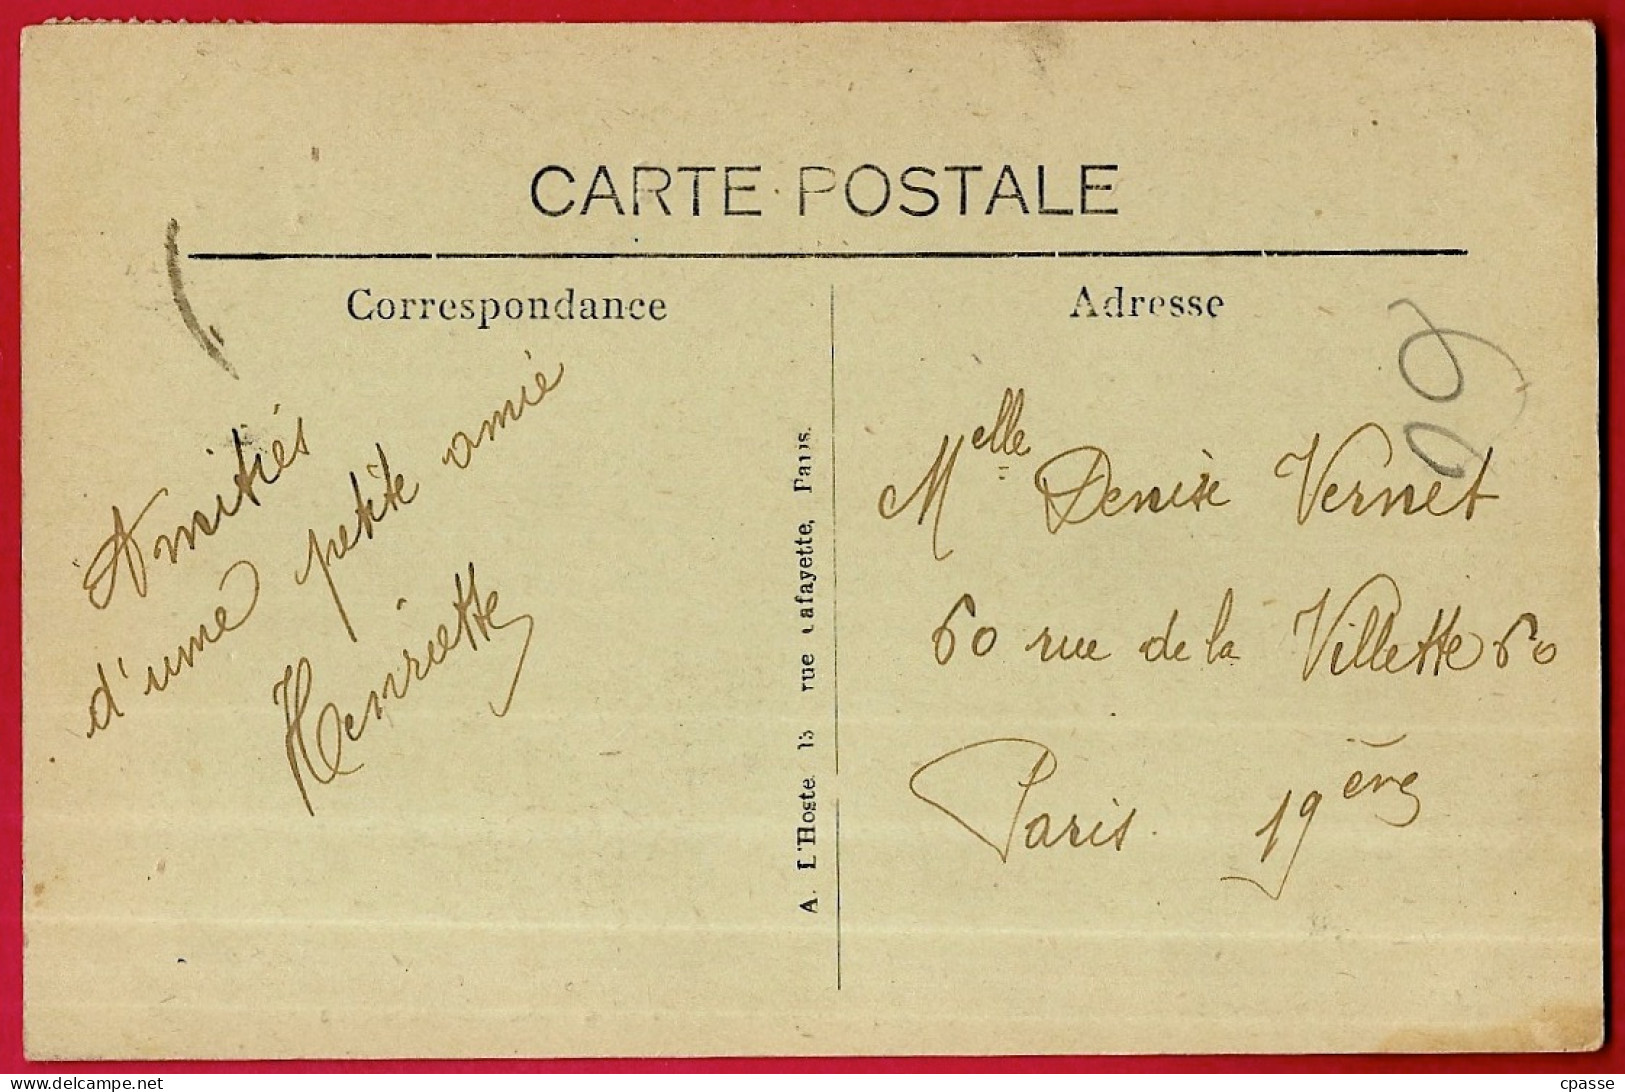 CARTE POSTALE
Correspondance
Amitiés
d'une petite amie
Henriette
A. L'Hoste 13 rue Lafayette, Paris.
Adresse
Melle Denise Vernet
60 rue de la Villette 60
Paris. 19ème
delcampe.net
cpasse